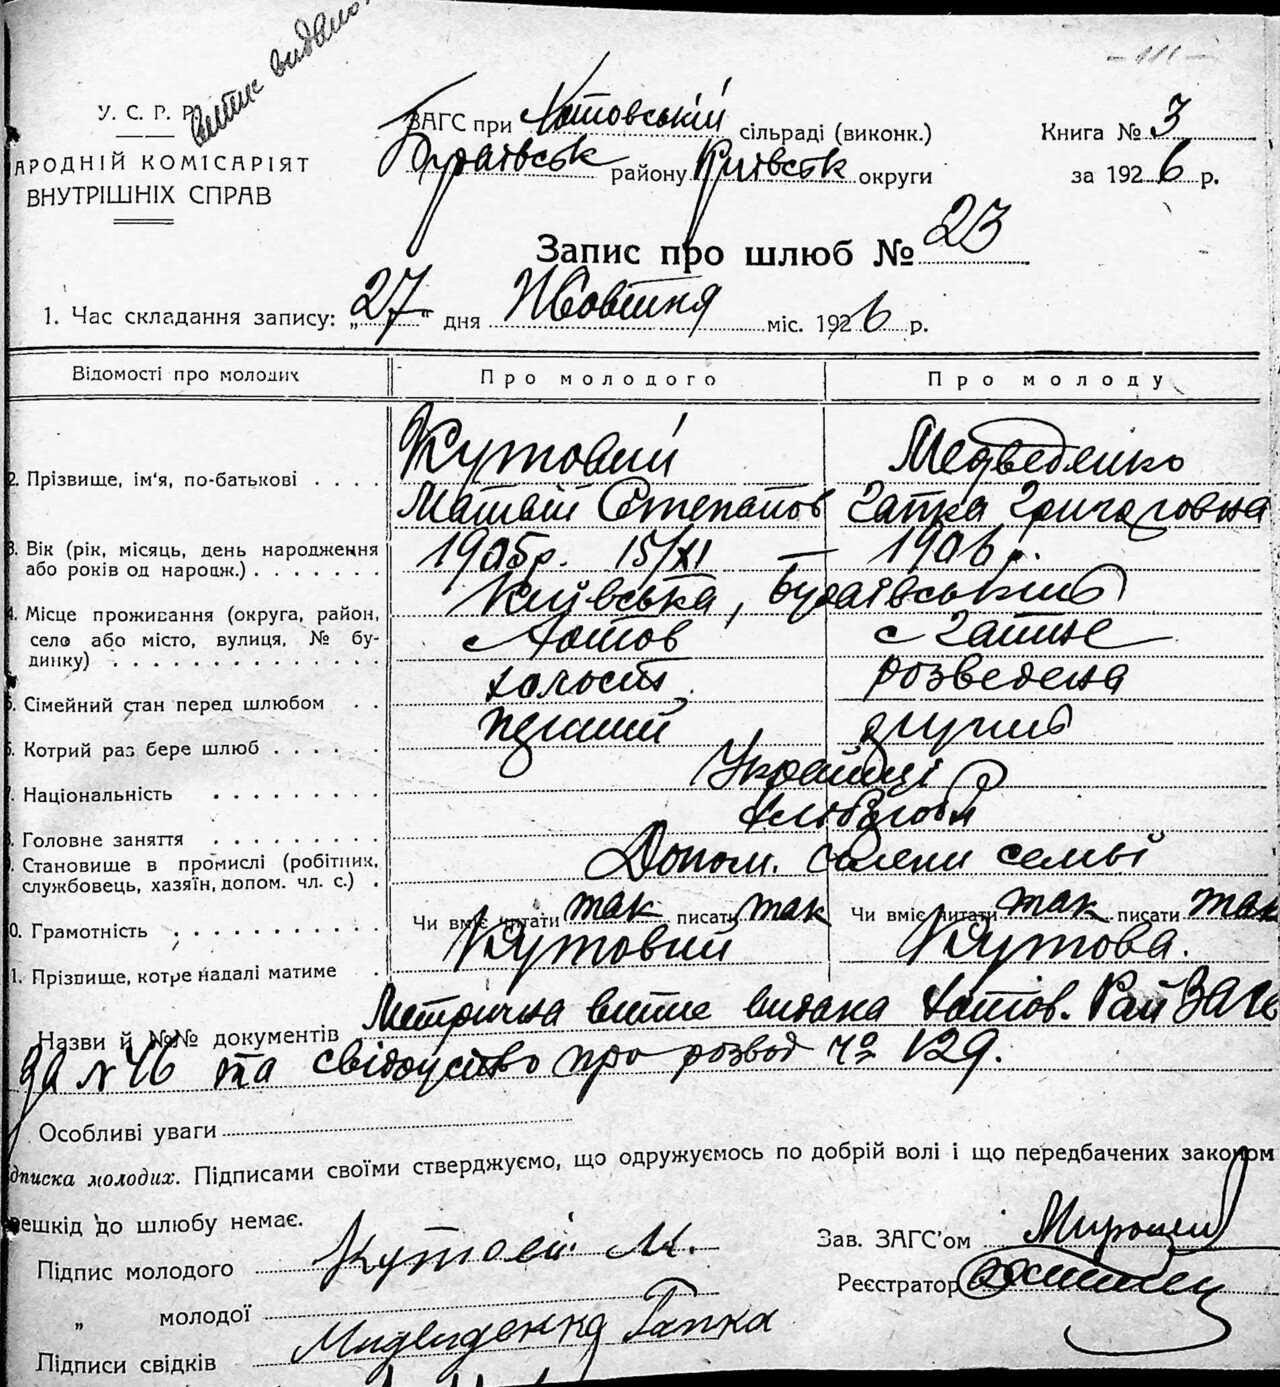 витяг видано
- 111 -
У. С. Р. Р.
АРОДНІЙ КОМІСАРІЯТ
ВНУТРІШНІХ СПРАВ
ЗАГС при Хотовській сільраді (виконк.)
Будаївськ району Київськ округи
Книга № 3
за 1926 р.
Запис про шлюб № 23
1. Час складання запису: „27" дня Жовтня міс. 1926 р.
Відомості про молодих
Про молодого
Про молоду
2. Прізвище, ім'я, по-батькові
Кутовий
Матвій Степанов
Медведенко
Гапка Григоровна
3. Вік (рік, місяць, день народження
або років од народж.)
1905р. 15/XI — 1906 р.
4. Місце проживання (округа, район,
село або місто, вулиця, № бу-
динку)
Київська, Будаївський
с Хотов
с Гатне
5. Сімейний стан перед шлюбом
холост
розведена
6. Котрий раз бере шлюб
перший
другий
7. Національність
Українці
8. Головне заняття
хліборобы
9. Становище в промислі (робітник,
службовець, хазяїн, допом. чл. с.)
Допом. члени семьї
10. Грамотність
Чи вміє читати так писати так
Чи вміє читати так писати так
11. Прізвище, котре надалі матиме
Кутовий
Кутова.
Назви й №№ документів Метрична витяг видана Хотов. Рай ЗАГС
за № 46 та свідоцтво про розвод № 129.
Особливі уваги
дписка молодих. Підписами своїми стверджуємо, що одружуємось по добрій волі і що передбачених законом
ерешкід до шлюбу немає.
Підпис молодого Кутовий М.
„ молодої
Підписи свідків
Медведенко Гапка
Зав. ЗАГС'ом
Реєстратор